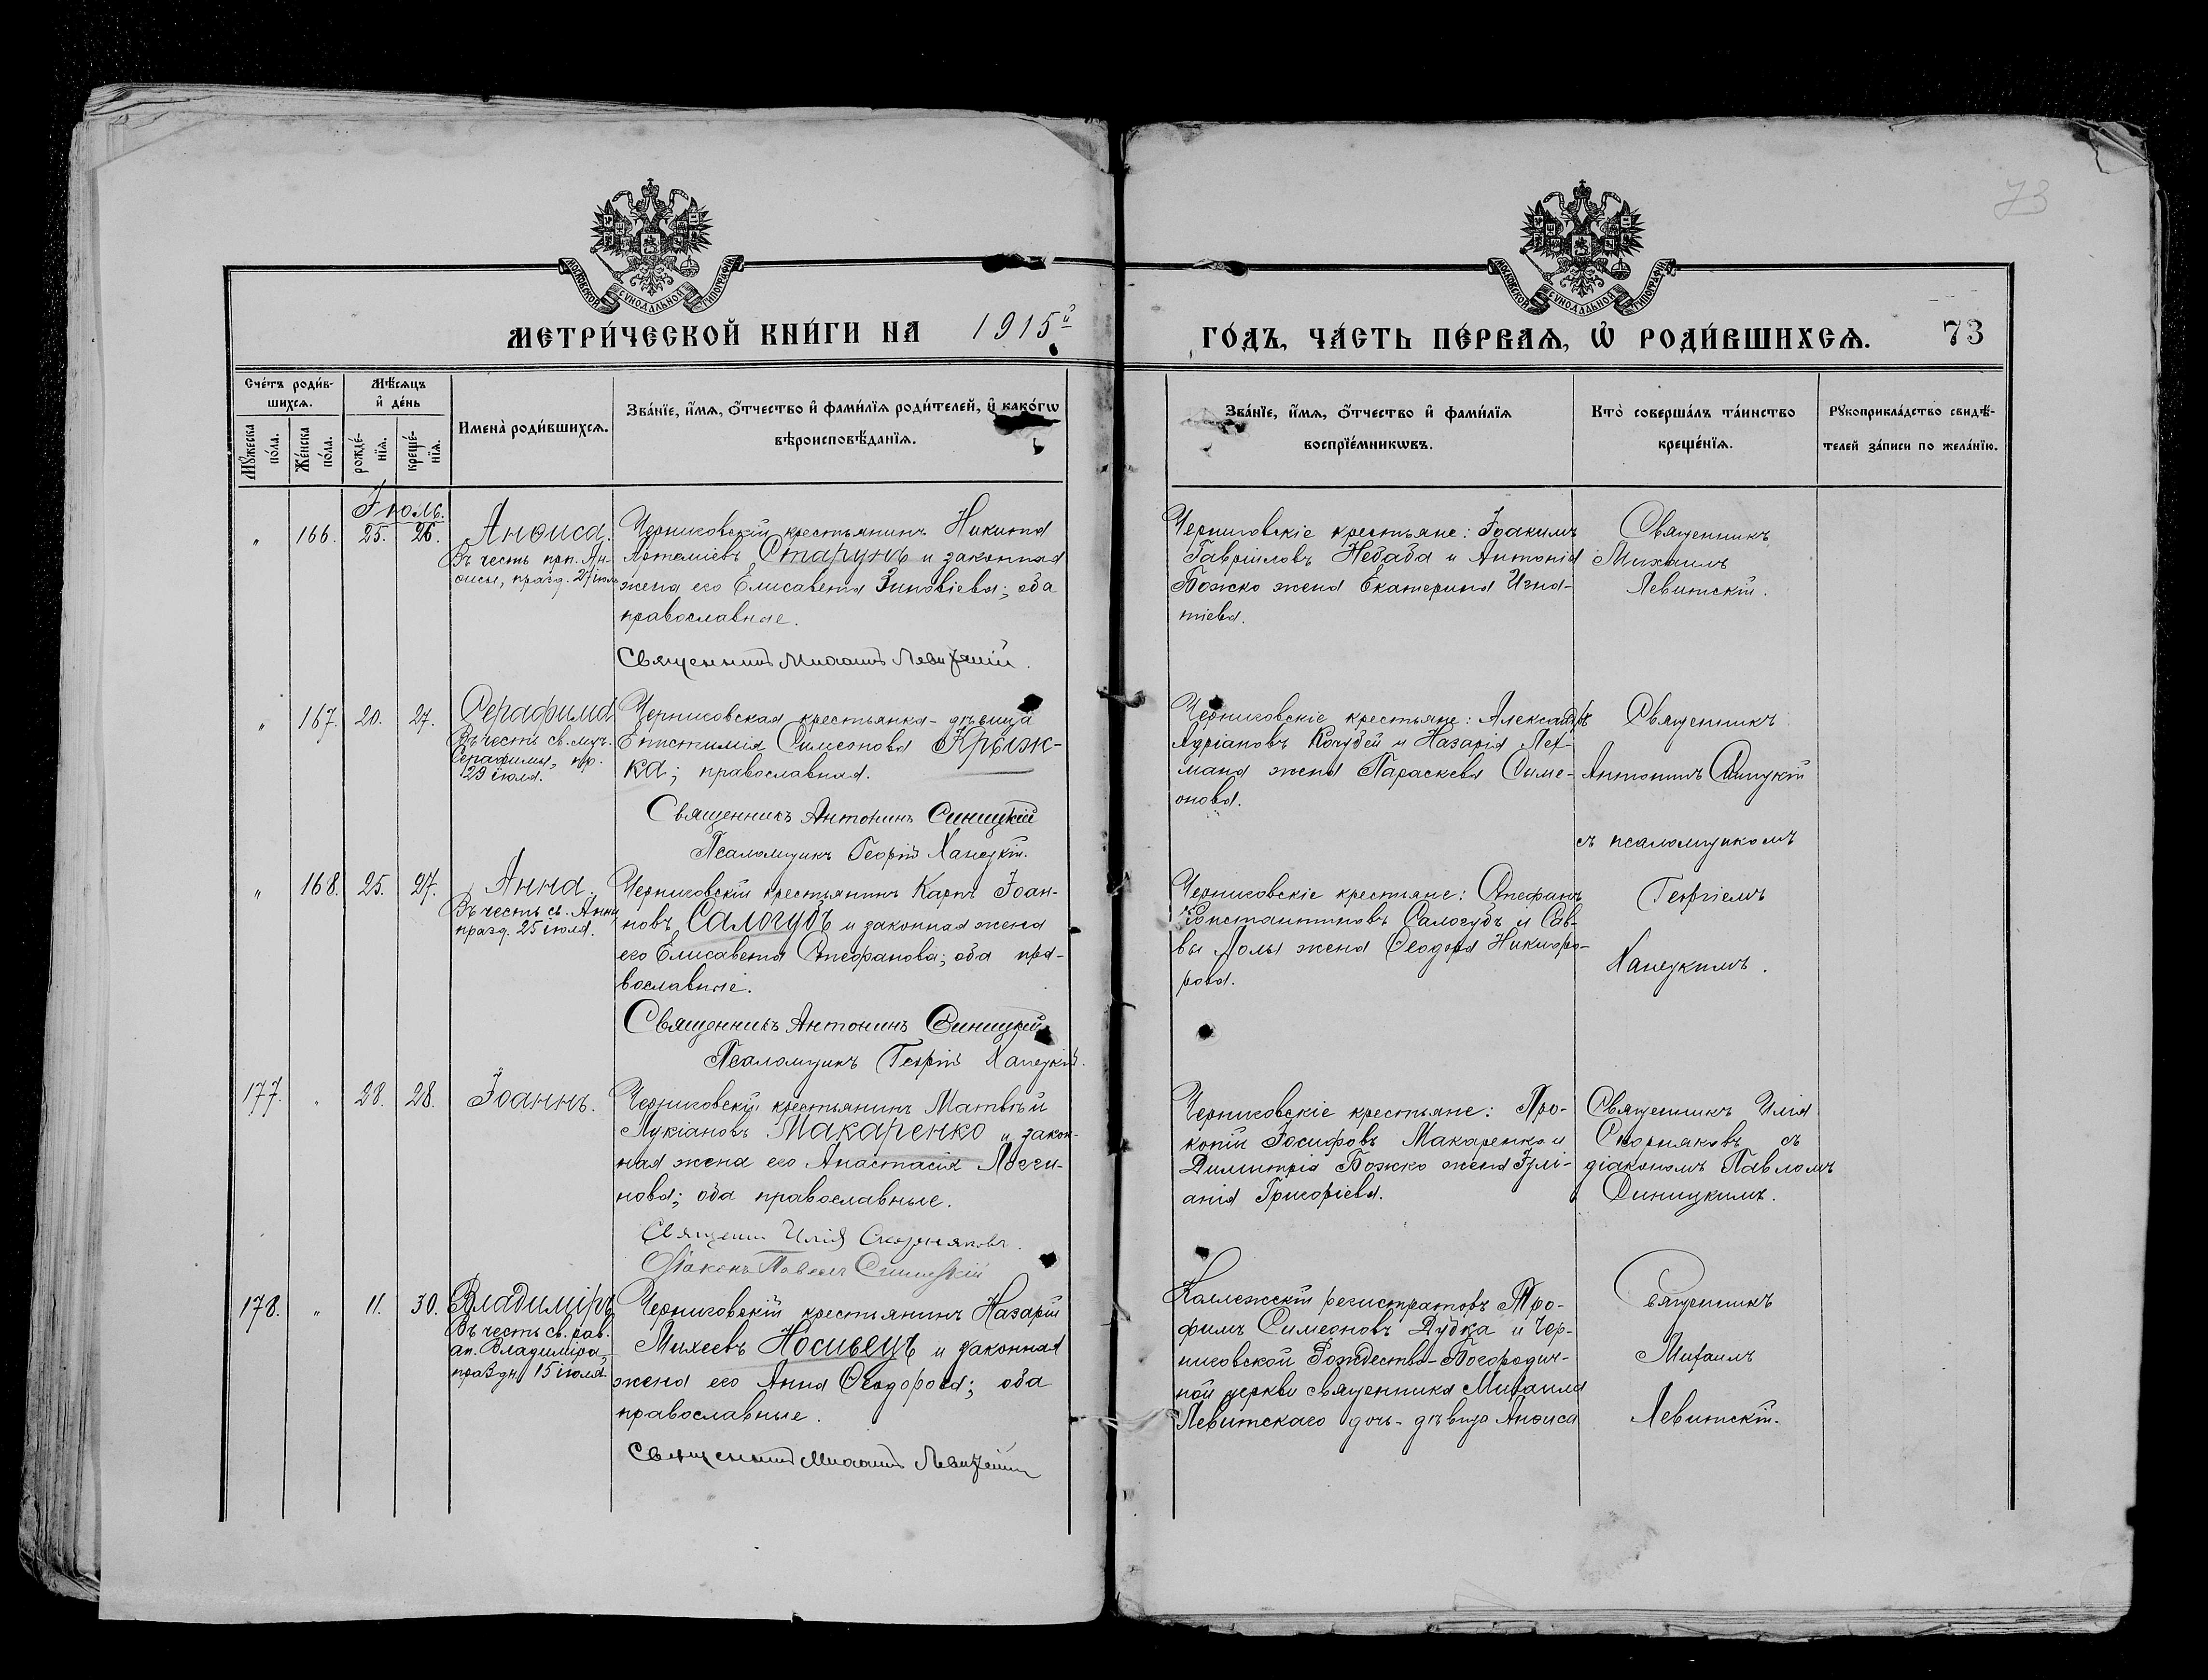 73
МОСКОВСКОЙ СѴНОДАЛЬНОЙ ТИПОГРАФІИ
МОСКОВСКОЙ СѴНОДАЛЬНОЙ ТИПОГРАФІИ
МЕТРИ́ЧЕСКОЙ КНИ́ГИ НА 1915й
ГО́ДЪ, ЧА́СТЬ ПЕ́РВАѦ, Ѡ҆ РОДИ́ВШИХСѦ. 73
Сче́тъ роди́в-
шихсѧ.
Мꙋ́жеска по́ла.
Же́нска по́ла.
Мѣ́сѧцъ
и҆ де́нь
рожде́-
нїѧ.
креще́-
нїѧ.
Имена̀ роди́вшихсѧ.
Зва́нїе, и҆́мѧ, ѻ҆́тчество и҆ фами́лїѧ роди́телей, и҆ како́гѡ
вѣроисповѣ́данїѧ.
Зва́нїе, и҆́мѧ, ѻ҆́тчество и҆ фами́лїѧ
воспрїе́мникѡвъ.
Кто̀ соверша́лъ та́инство
креще́нїѧ.
Рꙋкоприкла́дство свидѣ́-
телей за́писи по жела́нїю.
Іюль.
" 166. 25. 26.
Анѳиса.
Въ честь прп. Ан-
ѳисы, празд. 27 іюля
Черниговскій крестьянинъ Никита
Артеміевъ Старунъ и законная
жена его Елисавета Зиновіева; оба
православные.
Священникъ Михаилъ Левитскій.
Черниговскіе крестьяне: Іоакимъ
Гавріиловъ Небаба и Антонія
Божко жена Екатерина Игна-
тіева.
Священникъ
Михаилъ
Левитскій.
" 167. 20. 27.
Серафима
Въ честь св. муч.
Серафимы, пр.
29 іюля.
Черниговская крестьянка-дѣвица
Епистимія Симеонова Крыж-
ка; православная.
Священникъ Антонинъ Синицкій
Псаломщикъ Георгій Ханецкій.
Черниговскіе крестьяне: Александръ
Адріановъ Кочубей и Назарія Лех-
мана жена Параскева Симе-
онова.
Священникъ
Антонинъ Синицкій
съ псаломщикомъ
" 168. 25. 27.
Анна.
Въ честь св. Анны
празд. 25 іюля.
Черниговскій крестьянинъ Карпъ Іоан-
новъ Салогубъ и законная жена
его Елисавета Стефанова; оба пра-
вославные.
Священникъ Антонинъ Синицкій
Псаломщикъ Георгій Ханецкій.
Черниговскіе крестьяне: Стефанъ
Константиновъ Салогубъ и Сав-
вы Лолы жена Ѳеодора Никифо-
рова.
Георгіемъ
Ханецкимъ.
177. " 28. 28.
Іоаннъ.
Черниговскій крестьянинъ Матвѣй
Лукіановъ Макаренко и закон-
ная жена его Анастасія Логги-
нова; оба православные.
Священ. Илія Скорняковъ.
Діаконъ Павелъ Синицкій
Черниговскіе крестьяне: Про-
копій Іосифовъ Макаренко и
Димитрія Божко жена Іулі-
анія Григоріева.
Священникъ Илія
Скорняковъ съ
діакономъ Павломъ
Синицкимъ.
178. " 11. 30.
Владиміръ
Въ честь св. рав.
ап. Владиміра,
праздн. 15 іюля.
Черниговскій крестьянинъ Назарій
Михеевъ Носивецъ и законная
жена его Анна Ѳеодорова; оба
православные.
Священникъ Михаилъ Левитскій
Коллежскій регистраторъ Тро-
фимъ Симеоновъ Дудка и Чер-
ниговской Рождество-Богородич-
ной церкви священника Михаила
Левитскаго дочь-дѣвица Анѳиса
Священникъ
Михаилъ
Левитскій.